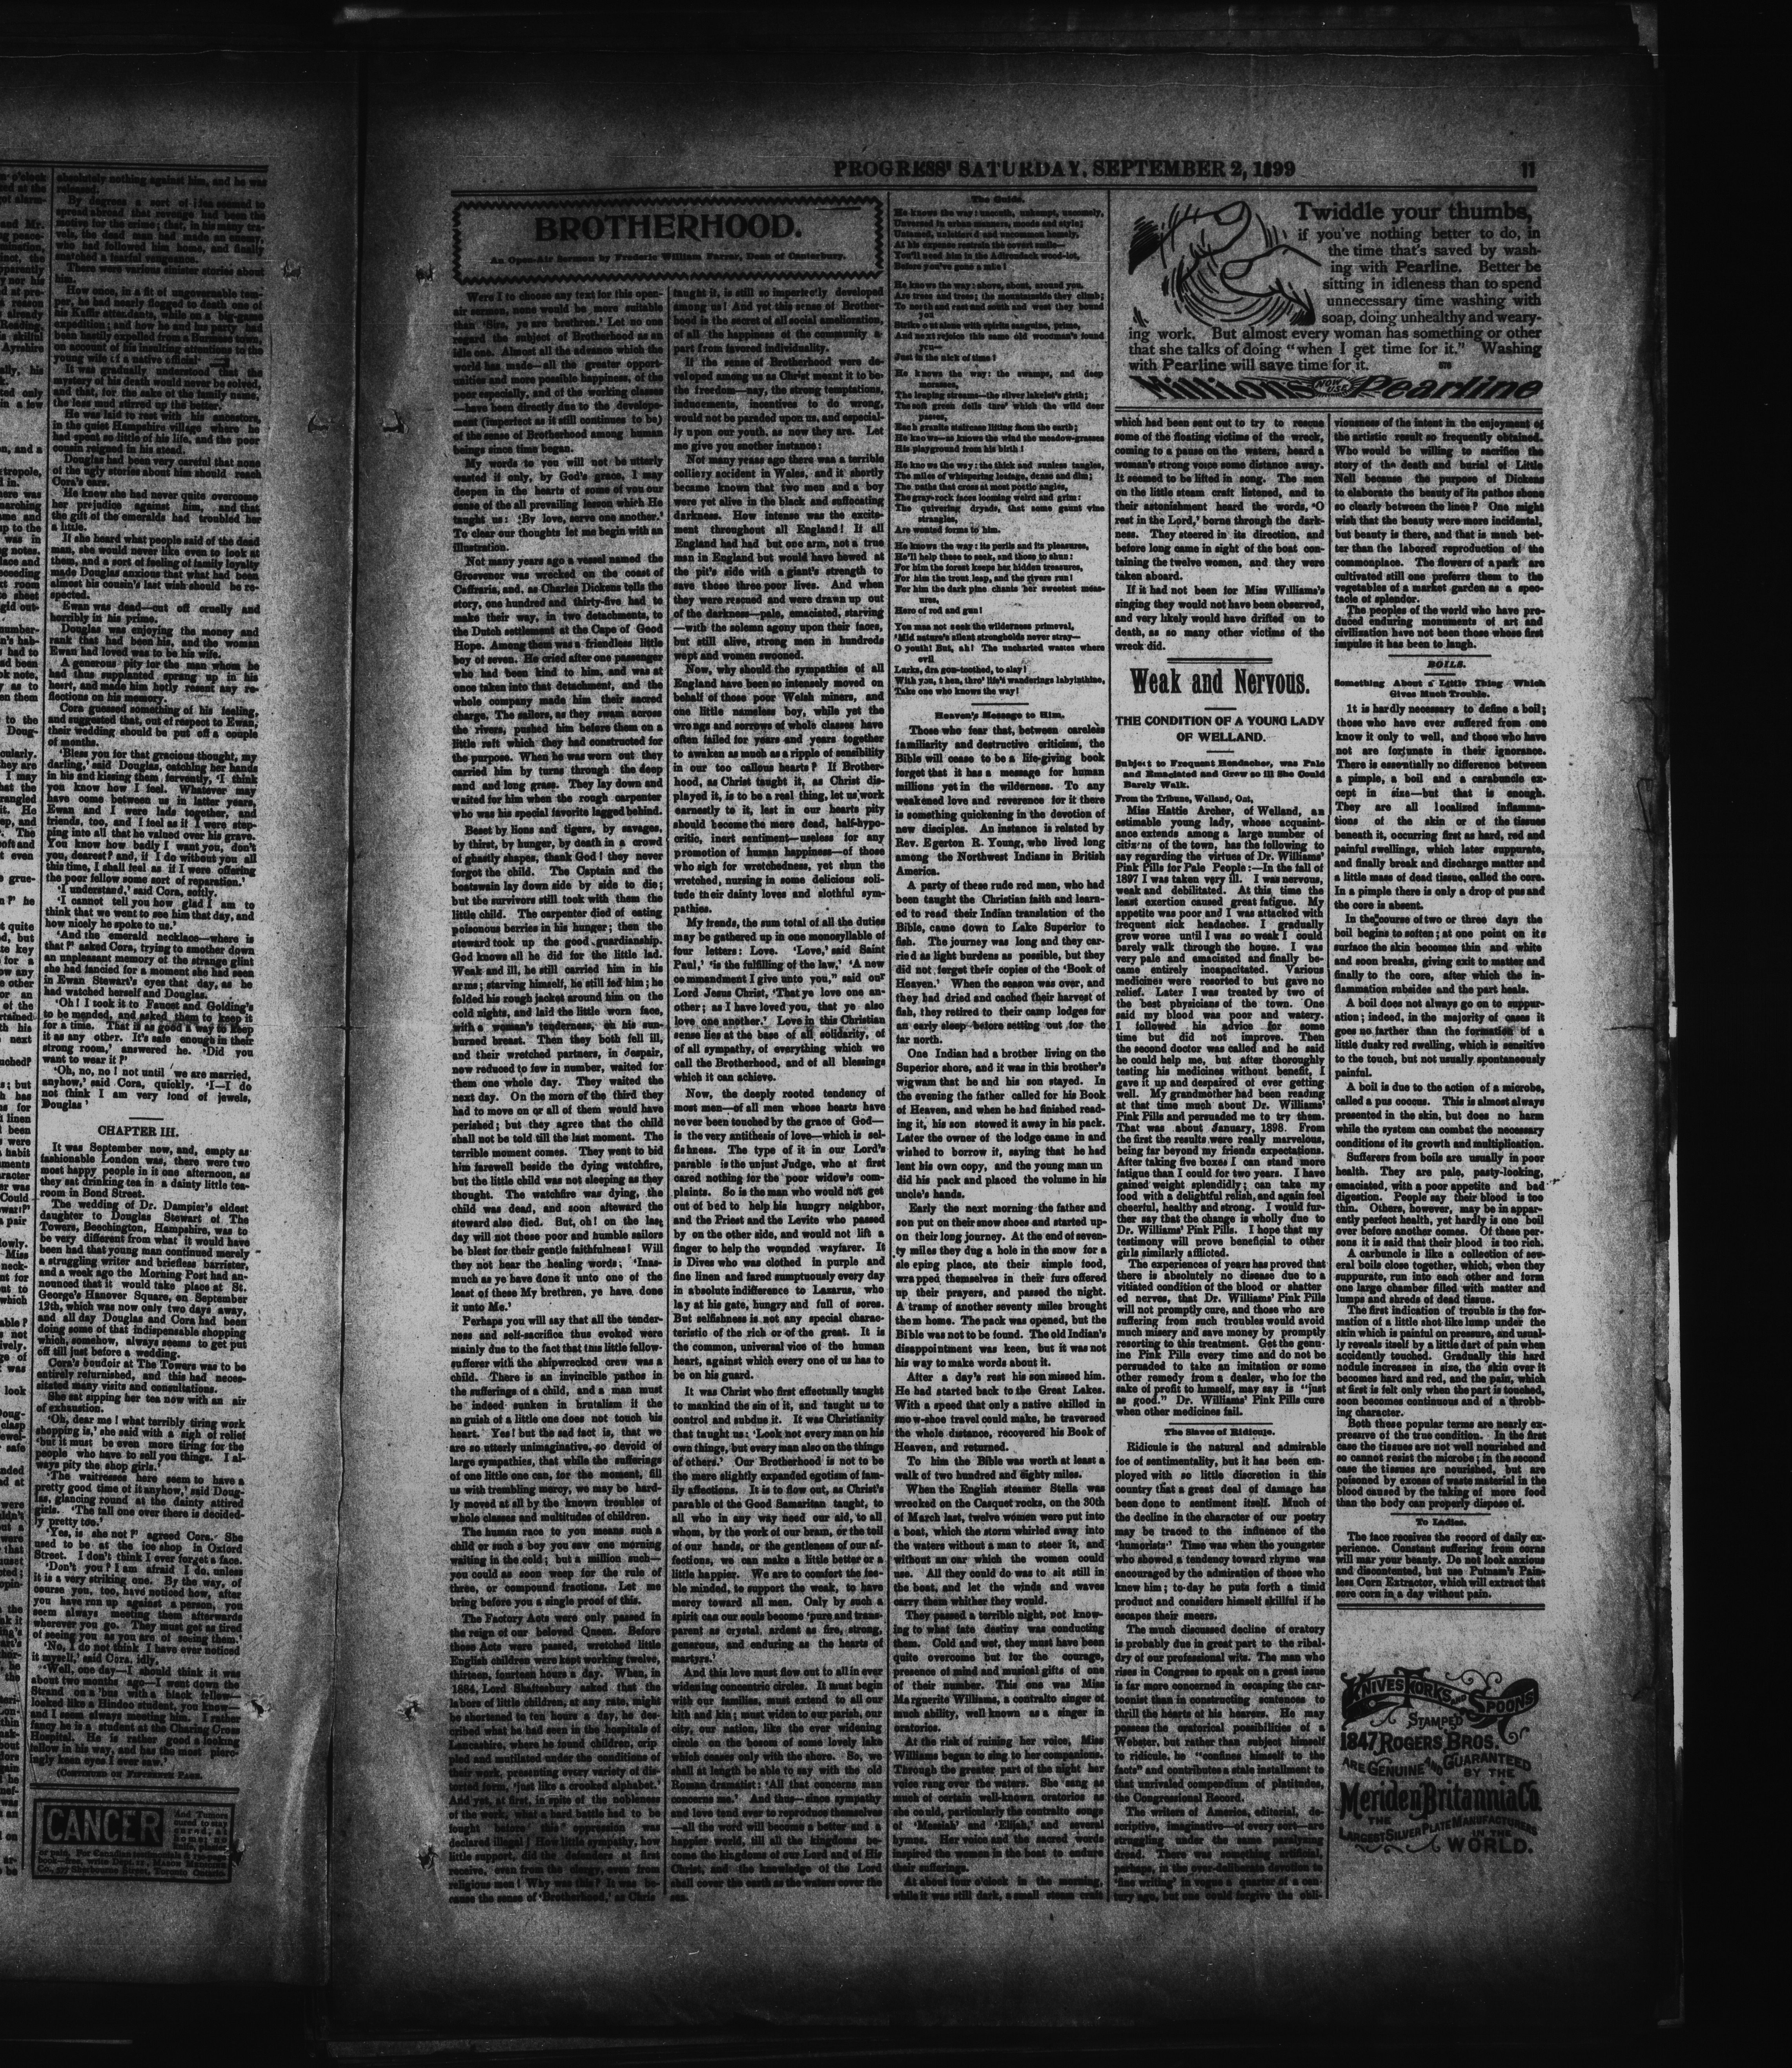 PROGRESS' SATURDAY, SEPTEMBER 2, 1899
11
BROTHERHOOD.
An Open-Air Sermon by Frederic William Farrar, Dean of Canterbury.
Were I to choose any text for this open-
air sermon, none would be more suitable
than 'Sirs, ye are brethren.' Let no one
regard the subject of Brotherhood as an
idle one. Almost all the advance which the
world has made—all the greater opport-
unities and more possible happiness, of the
poor especially, and of the working classes
—have been directly due to the develope-
ment (imperfect as it still continues to be)
of the sense of Brotherhood among human
beings since time began.
My words to you will not be utterly
wasted if only, by God's grace, I may
deepen in the hearts of some of you our
sense of the all prevailing lesson which He
taught us: 'By love, serve one another.'
To clear our thoughts let me begin with an
illustration.
Not many years ago a vessel named the
Grosvenor was wrecked on the coast of
Caffraria, and, as Charles Dickens tells the
story, one hundred and thirty-five had to
make their way, in two detachments, to
the Dutch settlement at the Cape of Good
Hope. Among them was a friendless little
boy of seven. He cried after one passenger
who had been kind to him, and was at
once taken into that detachment, and the
whole company made him their sacred
charge. The sailors, as they swam across
the rivers, pushed him before them on a
little raft which they had constructed for
the purpose. When he was worn out they
carried him by turns through the deep
sand and long grass. They lay down and
waited for him when the rough carpenter
who was his special favorite lagged behind.
Beset by lions and tigers, by savages,
by thirst, by hunger, by death in a crowd
of ghastly shapes, thank God! they never
forgot the child. The Captain and the
boatswain lay down side by side to die;
but the survivors still took with them the
little child. The carpenter died of eating
poisonous berries in his hunger; then the
steward took up the good guardianship.
God knows all he did for the little lad.
Weak and ill, he still carried him in his
arms; starving himself, he still fed him; he
folded his rough jacket around him on the
cold nights, and laid the little worn face,
with a woman's tenderness, on his sun-
burned breast. Then they both fell ill,
and their wretched partners, in despair,
now reduced to few in number, waited for
them one whole day. They waited the
next day. On the morn of the third they
had to move on or all of them would have
perished; but they agree that the child
shall not be told till the last moment. The
terrible moment comes. They went to bid
him farewell beside the dying watchfire,
but the little child was not sleeping as they
thought. The watchfire was dying, the
child was dead, and soon afteward the
steward also died. But, oh! on the last
day will not these poor and humble sailors
be blest for their gentle faithfulness! Will
they not hear the healing words; 'Inas-
much as ye have done it unto one of the
least of these My brethren, ye have done
it unto Me.'
Perhaps you will say that all the tender-
ness and self-sacrifice thus evoked were
mainly due to the fact that this little fellow-
sufferer with the shipwrecked crew was a
child. There is an invincible pathos in
the sufferings of a child, and a man must
be indeed sunken in brutalism if the
anguish of a little one does not touch his
heart. Yes! but the sad fact is, that we
are so utterly unimaginative, so devoid of
large sympathies, that while the sufferings
of one little one can, for the moment, fill
us with trembling mercy, we may be hard-
ly moved at all by the known troubles of
whole classes and multitudes of children.
The human race to you means such a
child or such a boy you saw one morning
waiting in the cold; but a million such—
you could as soon weep for the rule of
three, or compound fractions. Let me
bring before you a single proof of this.
The Factory Acts were only passed in
the reign of our beloved Queen. Before
those Acts were passed, wretched little
English children were kept working twelve,
thirteen, fourteen hours a day. When, in
1884, Lord Shaftesbury asked that the
labors of little children, at any rate, might
be shortened to ten hours a day, he des-
cribed what he had seen in the hospitals of
Lancashire, where he found children, crip
pled and mutilated under the conditions of
their work, presenting every variety of dis-
torted form, 'just like a crooked alphabet.'
And yet, at first, in spite of the nobleness
of the work, what a hard battle had to be
fought before this oppression was
declared illegal! How little sympathy, how
little support, did the defenders at first
receive, even from the clergy, even from
religious men! Why was this? It was be-
cause the sense of 'Brotherhood,' as Chris
taught it, is still so imperfectly developed
among us! And yet this sense of Brother-
hood is the secret of all social amelioration,
of all the happiness of the community a-
part from favored individuality.
If the sense of Brotherhood were de-
veloped among us as Christ meant it to be-
the freedom—nay, the strong temptations,
inducements, incentives to do wrong,
would not be paraded upon us, and especial-
ly upon our youth, as now they are. Let
me give you another instance:
Not many yeras ago there was a terrible
colliery accident in Wales, and it shortly
became known that two men and a boy
were yet alive in the black and suffocating
darkness. How intense was the excite-
ment throughout all England! If all
England had had but one arm, not a true
man in England but would have hewed at
the pit's side with a giant's strength to
save those three poor lives. And when
they were rescued and were drawn up out
of the darkness—pale, emaciated, starving
—with the solemn agony upon their faces,
but still alive, strong men in hundreds
wept and women swooned.
Now, why should the sympathies of all
England have been so intensely moved on
behalf of these poor Welsh miners, and
one little nameless boy, while yet the
wrongs and sorrows of whole classes have
often failed for years and years together
to awaken as much as a ripple of sensibility
in our too callous hearts? If Brother-
hood, as Christ taught it, as Christ dis-
played it, is to be a real thing, let us work
earnestly to it, lest in our hearts pity
should become the mere dead, half-hypo-
critic, inert sentiment—useless for any
promotion of human happiness—of those
who sigh for wretchedness, yet shun the
wretched, nursing in some delicious soli-
tude their dainty loves and slothful sym-
pathies.
My frends, the sum total of all the duties
may be gathered up in one monosyllable of
four letters: Love. 'Love,' said Saint
Paul,' 'is the fulfilling of the law,' 'A new
commandment I give unto you,'' said our
Lord Jesus Christ, 'That ye love one an-
other; as I have loved you, that ye also
love one another.' Love in this Christian
sense lies at the base of all solidarity, of
of all sympathy, of everything which we
call the Brotherhood, and of all blessings
which it can achieve.
Now, the deeply rooted tendency of
most men—of all men whose hearts have
never been touched by the grace of God—
is the very antithesis of love—which is sel-
fishness. The type of it in our Lord's
parable is the unjust Judge, who at first
cared nothing for the poor widow's com-
plaints. So is the man who would not get
out of bed to help his hungry neighbor,
and the Priest and the Levite who passed
by on the other side, and would not lift a
finger to help the wounded wayfarer. It
is Dives who was clothed in purple and
fine linen and fared sumptuously every day
in absolute indifference to Lazarus, who
lay at his gate, hungry and full of sores.
But selfishness is not any special charac-
teristic of the rich or of the great. It is
the common, universal vice of the human
heart, against which every one of us has to
be on his guard.
It was Christ who first effectually taught
to mankind the sin of it, and taught us to
control and subdue it. It was Christianity
that taught us: 'Look not every man on his
own things, but every man also on the things
of others.' Our Brotherhood is not to be
the mere slightly expanded egotism of fam-
ily affections. It is to flow out, as Christ's
parable of the Good Samaritan taught, to
all who in any way need our aid, to all
whom, by the work of our brain, or the toil
of our hands, or the gentleness of our af-
fections, we can make a little better or a
little happier. We are to comfort the fee-
ble minded, to support the weak, to have
mercy toward all men. Only by such a
spirit can our souls become 'pure and trans-
parent as crystal, ardent as fire, strong,
generous, and enduring as the hearts of
martyrs.'
And this love must flow out to all in ever
widening concentric circles. It must begin
with our families, must extend to all our
kith and kin; must widen to our parish, our
city, our nation, like the ever widening
circle on the bosom of some lovely lake
which ceases only with the shore. So, we
shall at length be able to say with the old
Roman dramatist: 'All that concerns man
concerns me.' And thus—since sympathy
and love tend ever to reproduce themselves
—all the word will become a better and a
happier world, till all the kingdoms be-
come the kingdoms of our Lord and of His
Christ, and the knowledge of the Lord
shall cover the earth as the waters cover the
sea.
The Guide.
He knows the way: uncouth, unkempt, uncomely,
Unversed in urban manners, moods and style;
Untamed, unlettered and uncommon homely,
At his expense restrain the covert smile—
You'll need him in the Adirondack wood-lot,
Before you've gone a mile!
He knows the way: above, about, around you.
Are trees and trees; the mountainside they climb;
To north and east and south and west they bound
you
Strike out alone with spirits sanguine, prime,
And next rejoice this same old woodman's found
you—
Just in the nick of time!
He knows the way: the swamps, and deep
morasses,
The leaping streams—the silver lakelet's girth;
The soft green dells thro' which the wild deer
passes,
Each granite staircase lifting from the earth;
He knows—as knows the wind the meadow-grasses
His playground from his birth!
He knows the way: the thick and sunless tangles,
The miles of whispering leafage, dense and dim;
The paths that cross at most poetic angles,
The gray-rock faces looming weird and grim:
The quivering dryads, that some gaunt vine
strangles,
Are wonted forms to him.
He knows the way: its perils and its pleasures,
He'll help these to seek, and those to shun:
For him the forest keeps her hidden treasures,
For him the trout leap, and the rivers run!
For him the dark pine chants her sweetest meas-
ures,
Hero of rod and gun!
You may not seek the wilderness primeval,
'Mid nature's silent strongholds never stray—
O youth! But, ah! The uncharted wastes where
evil
Lurks, dragon-toothed, to slay!
With you, then, thro' life's wanderings labyinthine,
Take one who knows the way!
Heaven's Message to Him.
Those who fear that, between careless
familiarity and destructive criticism, the
Bible will cease to be a life-giving book
forget that it has a message for human
millions yet in the wilderness. To any
weakened love and reverence for it there
is something quickening in the devotion of
new disciples. An instance is related by
Rev. Egerton R. Young, who lived long
among the Northwest Indians in British
America.
A party of these rude red men, who had
been taught the Christian faith and learn-
ed to read their Indian translation of the
Bible, came down to Lake Superior to
fish. The journey was long and they car-
ried as light burdens as possible, but they
did not forget their copies of the 'Book of
Heaven.' When the season was over, and
they had dried and cached their harvest of
fish, they retired to their camp lodges for
an early sleep before setting out for the
far north.
One Indian had a brother living on the
Superior shore, and it was in this brother's
wigwam that he and his son stayed. In
the evening the father called for his Book
of Heaven, and when he had finished read-
ing it, his son stowed it away in his pack.
Later the owner of the lodge came in and
wished to borrow it, saying that he had
lent his own copy, and the young man un
did his pack and placed the volume in his
uncle's hands.
Early the next morning the father and
son put on their snow shoes and started up-
on their long journey. At the end of seven-
ty miles they dug a hole in the snow for a
sleeping place, ate their simple food,
wrapped themselves in their furs offered
up their prayers, and passed the night.
A tramp of another seventy miles brought
them home. The pack was opened, but the
Bible was not to be found. The old Indian's
disappointment was keen, but it was not
his way to make words about it.
After a day's rest his son missed him.
He had started back to the Great Lakes.
With a speed that only a native skilled in
snow-shoe travel could make, he traversed
the whole distance, recovered his Book of
Heaven, and returned.
To him the Bible was worth at least a
walk of two hundred and eighty miles.
When the English steamer Stella was
wrecked on the Casquet rocks, on the 30th
of March last, twelve women were put into
a boat, which the storm whirled away into
the waters without a man to steer it, and
without an oar which the women could
use. All they could do was to sit still in
the boat, and let the winds and waves
carry them whither they would.
They passed a terrible night, not know-
ing to what fate destiny was conducting
them. Cold and wet, they must have been
quite overcome but for the courage,
presence of mind and musical gifts of one
of their number. This one was Miss
Marguerite Williams, a contralto singer of
much ability, well known as a singer in
oratorios.
At the risk of ruining her voice, Miss
Williams began to sing to her companions.
Through the greater part of the night her
voice rang over the waters. She sang as
much of certain well-known oratorios as
she could, particularly the contralto songs
of 'Messiah' and 'Elijah,' and several
hymns. Her voice and the sacred words
inspired the women in the boat to endure
their sufferings.
At about four o'clock in the morning,
while it was still dark, a small steam craft
Twiddle your thumbs,
if you've nothing better to do, in
the time that's saved by wash-
ing with Pearline. Better be
sitting in idleness than to spend
unnecessary time washing with
soap, doing unhealthy and weary-
ing work. But almost every woman has something or other
that she talks of doing "when I get time for it." Washing
with Pearline will save time for it.
Millions NOW USE Pearline
which had been sent out to try to rescue
some of the floating victims of the wreck,
coming to a pause on the waters, heard a
woman's strong voice some distance away.
It seemed to be lifted in song. The men
on the little steam craft listened, and to
their astonishment heard the words, 'O
rest in the Lord,' borne through the dark-
ness. They steered in its direction, and
before long came in sight of the boat con-
taining the twelve women, and they were
taken aboard.
If it had not been for Miss Williams's
singing they would not have been observed,
and very likely would have drifted on to
death, as so many other victims of the
wreck did.
Weak and Nervous.
THE CONDITION OF A YOUNG LADY
OF WELLAND.
Subject to Frequent Headaches, was Pale
and Emaciated and Grew so ill She Could
Barely Walk.
From the Tribune, Welland, Ont,
Miss Hattie Archer, of Welland, an
estimable young lady, whose acquaint-
ance extends among a large number of
citizens of the town, has the following to
say regarding the virtues of Dr. Williams'
Pink Pills for Pale People:—In the fall of
1897 I was taken very ill. I was nervous,
weak and debilitated. At this time the
least exertion caused great fatigue. My
appetite was poor and I was attacked with
frequent sick headaches. I gradually
grew worse until I was so weak I could
barely walk through the house. I was
very pale and emaciated and finally be-
came entirely incapacitated. Various
medicines were resorted to but gave no
relief. Later I was treated by two of
the best physicians of the town. One
said my blood was poor and watery.
I followed his advice for some
time but did not improve. Then
the second doctor was called and he said
he could help me, but after thoroughly
testing his medicines without benefit, I
gave it up and despaired of ever getting
well. My grandmother had been reading
at that time much about Dr. Williams'
Pink Pills and persuaded me to try them.
That was about January, 1898. From
the first the results were really marvelous,
being far beyond my friends expectations.
After taking five boxes I can stand more
fatigue than I could for two years. I have
gained weight splendidly; can take my
food with a delightful relish, and again feel
cheerful, healthy and strong. I would fur-
ther say that the change is wholly due to
Dr. Williams' Pink Pills. I hope that my
testimony will prove beneficial to other
girls similarly afflicted.
The experiences of years has proved that
there is absolutely no disease due to a
vitiated condition of the blood or shatter
ed nerves, that Dr. Williams' Pink Pills
will not promptly cure, and those who are
suffering from such troubles would avoid
much misery and save money by promptly
resorting to this treatment. Get the genu-
ine Pink Pills every time and do not be
persuaded to take an imitation or some
other remedy from a dealer, who for the
sake of profit to himself, may say is "just
as good." Dr. Williams' Pink Pills cure
when other medicines fail.
The Slaves of Ridicule.
Ridicule is the natural and admirable
foe of sentimentality, but it has been em-
ployed with so little discretion in this
country that a great deal of damage has
been done to sentiment itself. Much of
the decline in the character of our poetry
may be traced to the influence of the
'humorists.' Time was when the youngster
who showed a tendency toward rhyme was
encouraged by the admiration of those who
knew him; to-day he puts forth a timid
product and considers himself skillful if he
escapes their sneers.
The much discussed decline of oratory
is probably due in great part to the ribal-
dry of our professional wits. The man who
rises in Congress to speak on a great issue
is far more concerned in escaping the car-
toonist than in constructing sentences to
thrill the hearts of his hearers. He may
possess the oratorical possibilities of a
Webster, but rather than subject himself
to ridicule, he "confines himself to the
facts" and contributes a stale installment to
that unrivaled compendium of platitudes,
the Congressional Record.
The writers of America, editorial, de-
scriptive, imaginative—of every sort—are
struggling under the same paralyzing
dread. There was something artificial,
perhaps, in the over-deliberate devotion to
'fine writing' in vogue a quarter of a cen-
tury ago, but one could forgive the obli-
viousness of the intent in the enjoyment of
the artistic result so frequently obtained.
Who would be willing to sacrifice the
story of the death and burial of Little
Nell because the purpose of Dickens
to elaborate the beauty of its pathos shone
so clearly between the lines? One might
wish that the beauty were more incidental,
but beauty is there, and that is much bet-
ter than the labored reproduction of the
commonplace. The flowers of a park are
cultivated still one preferrs them to the
vegetables of a market garden as a spec-
tacle of splendor.
The peoples of the world who have pro-
duced enduring monuments of art and
civilization have not been those whose first
impulse it has been to laugh.
BOILS.
Something About a Little Thing Which
Gives Much Trouble.
It is hardly necessary to define a boil;
those who have ever suffered from one
know it only to well, and those who have
not are fortunate in their ignorance.
There is essentially no difference between
a pimple, a boil and a carabuncle ex-
cept in size—but that is enough.
They are all localized inflamma-
tions of the skin or of the tissues
beneath it, occurring first as hard, red and
painful swellings, which later suppurate,
and finally break and discharge matter and
a little mass of dead tissue, called the core.
In a pimple there is only a drop of pus and
the core is absent.
In the course of two or three days the
boil begins to soften; at one point on its
surface the skin becomes thin and white
and soon breaks, giving exit to matter and
finally to the core, after which the in-
flammation subsides and the part heals.
A boil does not always go on to suppur-
ation; indeed, in the majority of cases it
goes no farther than the formation of a
little dusky red swelling, which is sensitive
to the touch, but not usually spontaneously
painful.
A boil is due to the action of a microbe,
called a pus coccus. This is almost always
presented in the skin, but does no harm
while the system can combat the necessary
conditions of its growth and multiplication.
Sufferers from boils are usually in poor
health. They are pale, pasty-looking,
emaciated, with a poor appetite and bad
digestion. People say their blood is too
thin. Others, however, may be in appar-
ently perfect health, yet hardly is one boil
over before another comes. Of these per-
sons it is said that their blood is too rich.
A carbuncle is like a collection of sev-
eral boils close together, which, when they
suppurate, run into each other and form
one large chamber filled with matter and
lumps and shreds of dead tissue.
The first indication of trouble is the for-
mation of a little shot-like lump under the
skin which is painful on pressure, and usual-
ly reveals itself by a little dart of pain when
accidently touched. Gradually this hard
nodule increases in size, the skin over it
becomes hard and red, and the pain, which
at first is felt only when the part is touched,
soon becomes continuous and of a throbb-
ing character.
Both these popular terms are nearly ex-
pressive of the true condition. In the first
case the tissues are not well nourished and
so cannot resist the microbe; in the second
case the tissues are nourished, but are
poisoned by excess of waste material in the
blood caused by the taking of more food
than the body can properly dispose of.
To Ladies.
The face receives the record of daily ex-
perience. Constant suffering from corns
will mar your beauty. Do not look anxious
and discontented, but use Putnam's Pain-
less Corn Extractor, which will extract that
sore corn in a day without pain.
KNIVES FORKS AND SPOONS
STAMPED
1847 ROGERS BROS.
ARE GENUINE AND GUARANTEED
BY THE
Meriden Britannia Co.
THE
LARGEST SILVER PLATE MANUFACTURERS
IN THE
WORLD.
absolutely nothing against him, and he was
released.
There were various sinister stories about
him.
It was gradually understood that the
mystery of his death would never be solved,
and that, for the sake of the family name,
the less mud stirred up the better.
He was laid to rest with his ancestors,
in the quiet Hampshire village where he
had spent so little of his life, and the poor
cousin reigned in his stead.
Douglas had been very careful that none
of the ugly stories about him should reach
Cora's ears.
He knew she had never quite overcome
her prejudice against him, and that
the gift of the emeralds had troubled her
a little.
If she heard what people said of the dead
man, she would never like even to look at
them, and a sort of feeling of family loyalty
made Douglas anxious that what had been
almost his cousin's last wish should be re-
spected.
Ewan was dead—cut off cruelly and
horribly in his prime.
Douglas was enjoying the money and
rank that had been his, and the woman
Ewan had loved was to be his wife.
A generous pity for the man whom he
had thus supplanted sprang up in his
heart, and made him hotly resent any re-
flections on his memory.
Cora guessed something of his feeling,
and suggested that, out of respect to Ewan,
their wedding should be put off a couple
of months.
'Bless you for that gracious thought, my
darling,' said Douglas, catching her hands
in his and kissing them fervently, 'I think
you know how I feel. Whatever may
have come between us in latter years,
Ewan and I were lads together, and
friends, too, and I feel as if I were step-
ping into all that he valued over his grave.
You know how badly I want you, don't
you, dearest? and, if I do without you all
this time, I shall feel as if I were offering
the poor fellow some sort of reparation.'
'I understand,' said Cora, softly.
'I cannot tell you how glad I am to
think that we went to see him that day, and
how nicely he spoke to us.'
'And the emerald necklace—where is
that?' asked Cora, trying to smother down
an unpleasant memory of the strange glint
she had fancied for a moment she had seen
in Ewan Stewart's eyes that day, as he
had watched herself and Douglas.
'Oh! I took it to Faucet and Golding's
to be mended, and asked them to keep it
for a time. That is as good a way to keep
it as any other. It's safe enough in their
strong room,' answered he. 'Did you
want to wear it?'
'Oh, no, no! not until we are married,
anyhow,' said Cora, quickly. 'I—I do
not think I am very fond of jewels,
Douglas'
CHAPTER III.
It was September now, and, empty as
fashionable London was, there were two
most happy people in it one afternoon, as
they sat drinking tea in a dainty little tea-
room in Bond Street.
The wedding of Dr. Dampier's eldest
daughter to Douglas Stewart of The
Towers, Beechington, Hampshire, was to
be very different from what it would have
been had that young man continued merely
a struggling writer and briefless barrister,
and a week ago the Morning Post had an-
nounced that it would take place at St.
George's Hanover Square, on September
12th, which was now only two days away,
and all day Douglas and Cora had been
doing some of that indispensable shopping
which, somehow, always seems to get put
off till just before a wedding.
Cora's boudoir at The Towers was to be
entirely refurnished, and this had neces-
sitated many visits and consultations.
She sat sipping her tea now with an air
of exhaustion.
'Oh, dear me! what terribly tiring work
shopping is,' she said with a sigh of relief
'but it must be even more tiring for the
people who have to sell you things. I al-
ways pity the shop girls.'
'The waitresses here seem to have a
pretty good time of it anyhow,' said Doug-
las, glancing round at the dainty attired
girls. 'The tall one over there is decided-
ly pretty too.'
'Yes, is she not?' agreed Cora. She
used to be at the ice shop in Oxford
Street. I don't think I ever forget a face.
'Don't you? I am afraid I do, unless
it is a very striking one. By the way, of
course you, too, have noticed how, after
you have run up against a person, you
seem always meeting them afterwards
wherever you go. They must get as tired
of seeing you as you are of seeing them.'
'No, I do not think I have ever noticed
it myself,' said Cora, idly.
'Well, one day—I should think it was
about two months ago—I went down the
Strand on a 'bus with a black fellow—
looked like a Hindoo student, you know—
and I seem always meeting him. I rather
fancy he is a student at the Charing Cross
Hospital. He is rather good a looking
fellow in his way, and has the most pierc-
ingly keen eyes I ever saw.'
(CONTINUED ON FIFTEENTH PAGE.
CANCER
And Tumors
cured to stay
cured, at
home; no